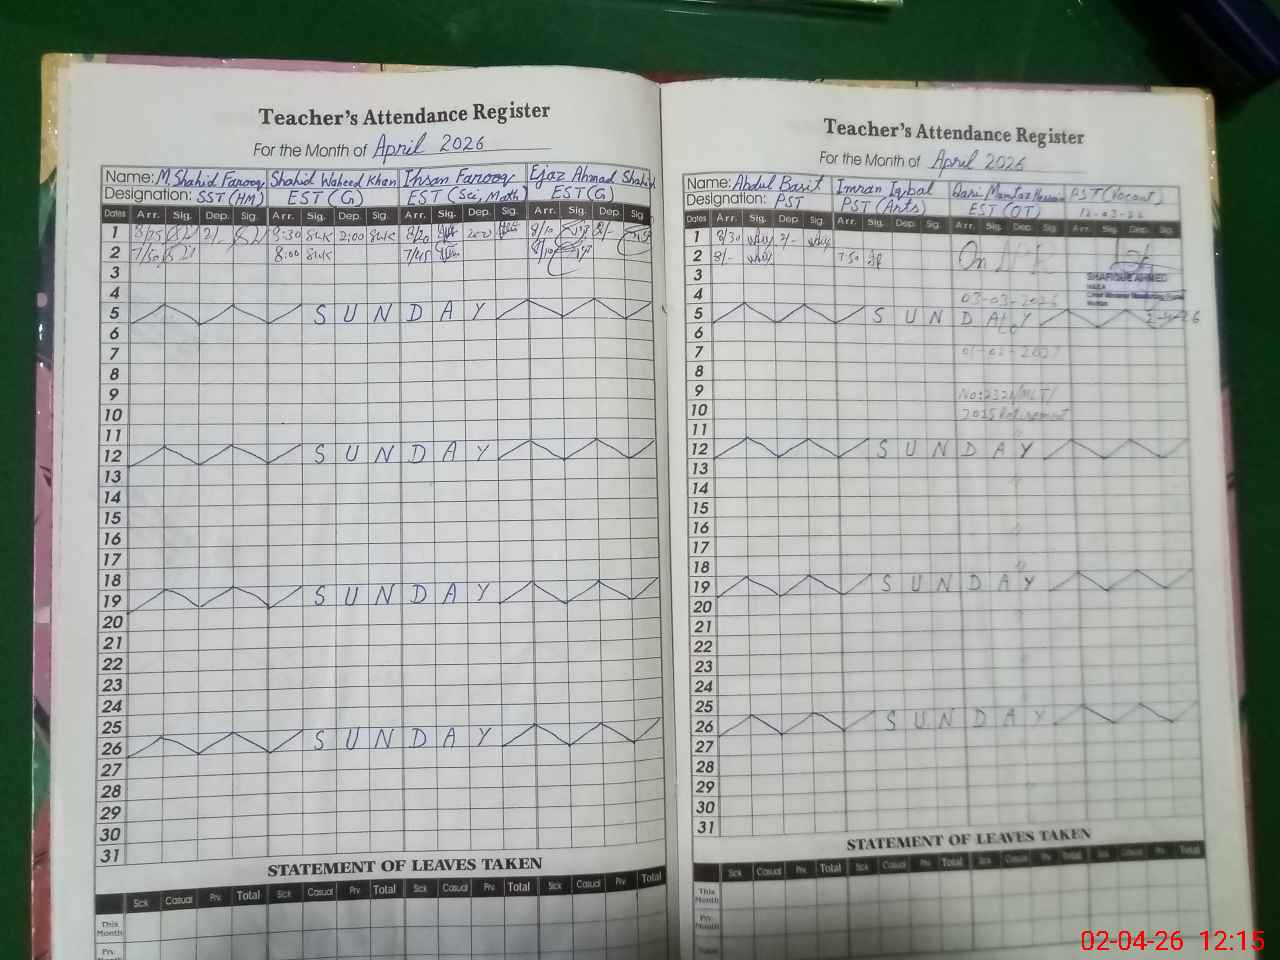 Teacher's Attendance Register
For the Month of April 2026
Name: M. Shahid Farooq Shahid Waheed Khan Ihsan Farooq Ejaz Ahmad Shahid
Designation: SST (HM) EST (G) EST (Sci, Math) EST (G)
Dates Arr. Sig. Dep. Sig. Arr. Sig. Dep. Sig. Arr. Sig. Dep. Sig. Arr. Sig. Dep. Sig
1 8/25 2/- 8:30 SWK 2:00 SWK 8/20 2:00 8/10 2/-
2 7/50 8:00 SWK 7/45 8/10
3
4
5 SUNDAY
6
7
8
9
10
11
12 SUNDAY
13
14
15
16
17
18
19 SUNDAY
20
21
22
23
24
25
26 SUNDAY
27
28
29
30
31
STATEMENT OF LEAVES TAKEN
Sick Casual Prv. Total Sick Casual Prv. Total Sick Casual Prv. Total Sick Casual Prv. Total
This Month
Prv. Month
Teacher's Attendance Register
For the Month of April 2026
Name: Abdul Basit Imran Iqbal Qari Mumtaz Hussain PST (Vacant)
Designation: PST PST (Arts) EST (OT) 12-03-22
Dates Arr. Sig. Dep. Sig. Arr. Sig. Dep. Sig. Arr. Sig. Dep. Sig. Arr. Sig. Dep. Sig.
1 8/30 2/-
2 8/- 7:50 On
3 SHAFIQUE AHMED
4 03-03-2026
5 SUNDAY To 2-4-26
6
7 01-02-2027
8
9
10 2025 Retirement
11
12 SUNDAY
13
14
15
16
17
18
19 SUNDAY
20
21
22
23
24
25
26 SUNDAY
27
28
29
30
31
STATEMENT OF LEAVES TAKEN
Sick Casual Prv. Total Sick Casual Prv. Total Sick Casual Prv. Total Sick Casual Prv. Total
This Month
Prv. Month
Total
02-04-26 12:15